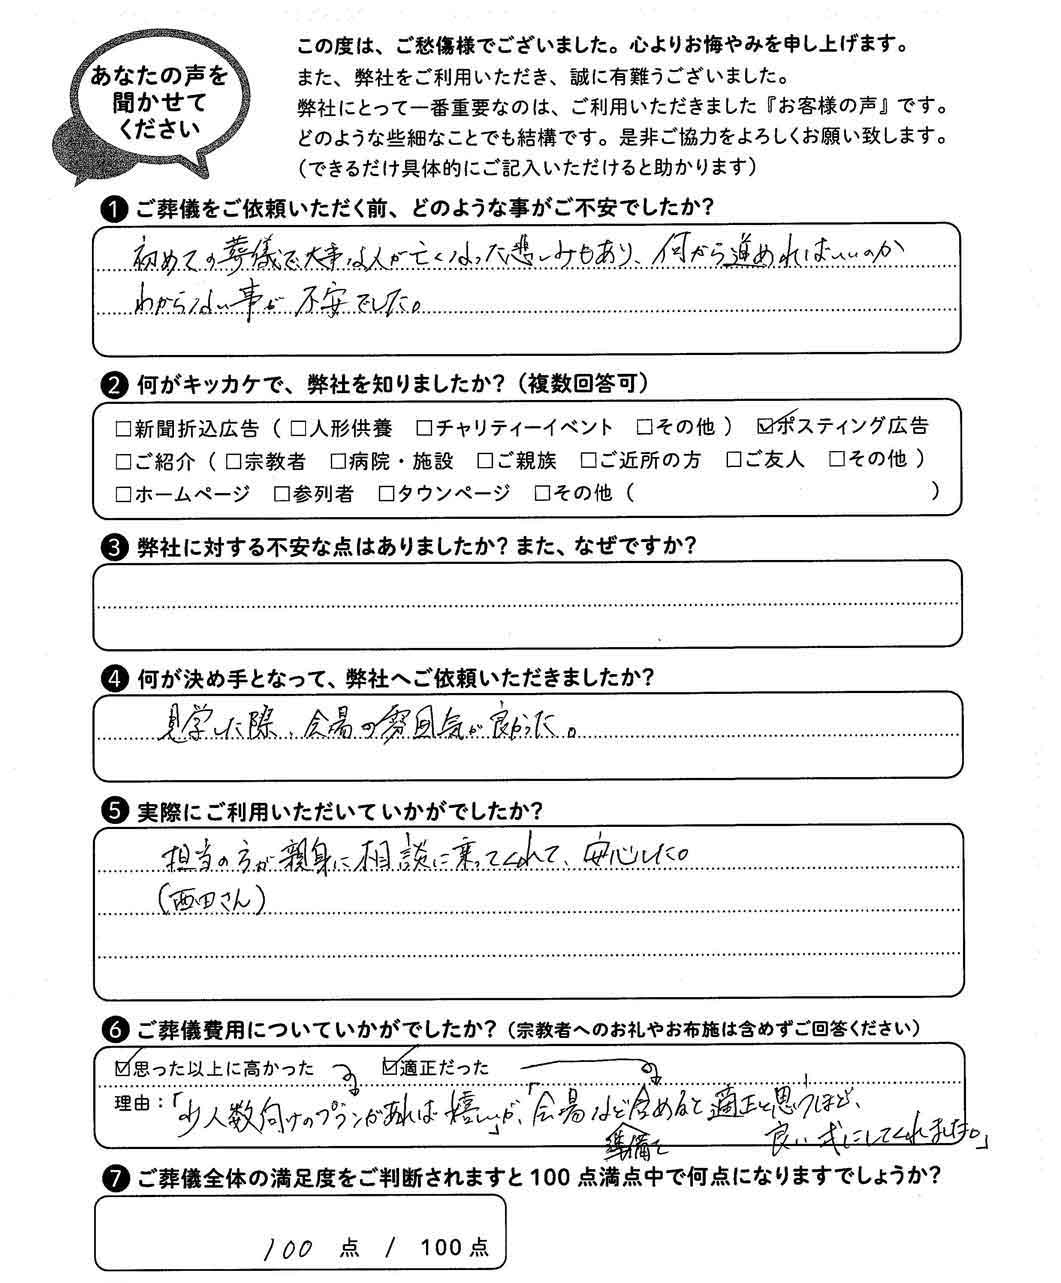 あなたの声を
聞かせて
ください
この度は、ご愁傷様でございました。心よりお悔やみを申し上げます。
また、弊社をご利用いただき、誠に有難うございました。
弊社にとって一番重要なのは、ご利用いただきました『お客様の声』です。
どのような些細なことでも結構です。是非ご協力をよろしくお願い致します。
（できるだけ具体的にご記入いただけると助かります）
❶ ご葬儀をご依頼いただく前、どのような事がご不安でしたか？
初めての葬儀で大事な人が亡くなった悲しみもあり、何から進めればいいのか
わからない事が不安でした。
❷ 何がキッカケで、弊社を知りましたか？（複数回答可）
□新聞折込広告（ □人形供養 □チャリティーイベント □その他 ） ☑ポスティング広告
□ご紹介（ □宗教者 □病院・施設 □ご親族 □ご近所の方 □ご友人 □その他 ）
□ホームページ □参列者 □タウンページ □その他（ ）
❸ 弊社に対する不安な点はありましたか？また、なぜですか？
❹ 何が決め手となって、弊社へご依頼いただきましたか？
見学した際、会場の雰囲気が良かった。
❺ 実際にご利用いただいていかがでしたか？
担当の方が親身に相談に乗ってくれて、安心した。
（西田さん）
❻ ご葬儀費用についていかがでしたか？（宗教者へのお礼やお布施は含めずご回答ください）
☑思った以上に高かった ☑適正だった
理由：「少人数向けのプランがあれば嬉しい」が、「会場など含めると適正と思うほど、
準備も
良い式にしてくれました。」
❼ ご葬儀全体の満足度をご判断されますと100点満点中で何点になりますでしょうか？
100 点 / 100点